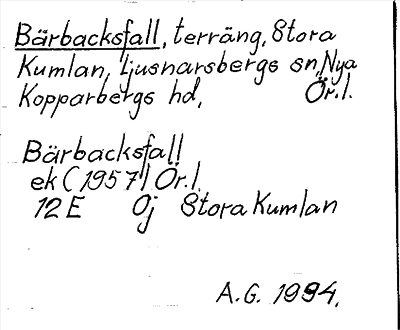 Bärbacksfall, terräng, Stora
Kumlan, Ljusnarsbergs sn, Nya
Kopparbergs hd, Ör.l.
Bärbacksfall
ek (1957) Ör.l.
12E 0j Stora Kumlan
A.G. 1994.